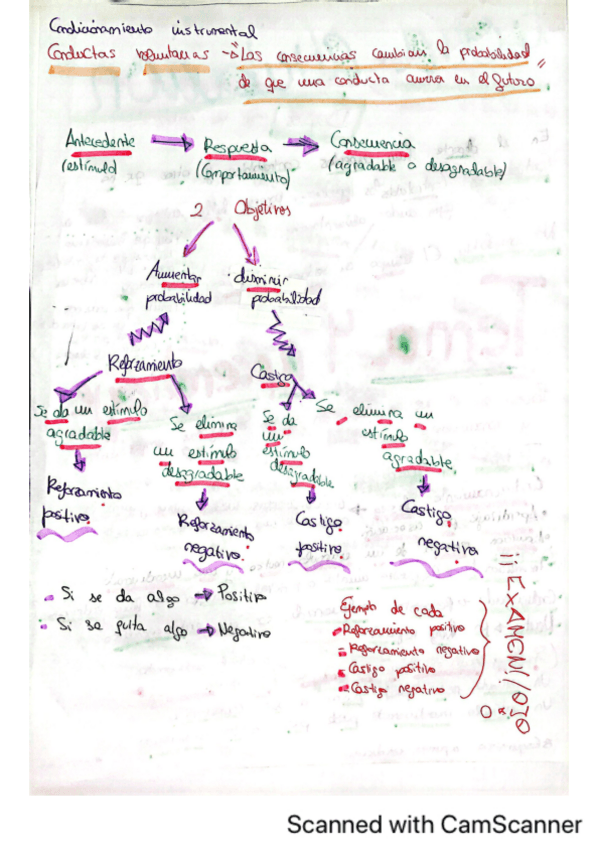 Condicionamiento instrumental
Conductas voluntarias → Las consecuencias cambian la probabilidad
de que una conducta ocurra en el futuro
Antecedente → Respuesta → Consecuencia
(estímulo) (Comportamiento) (agradable o desagradable)
2 Objetivos
Aumentar disminuir
probabilidad probabilidad
Reforzamiento Castigo
Se da un estímulo agradable
Se elimina un estímulo desagradable
Se da un estímulo desagradable
Se elimina un estímulo agradable
Reforzamiento positivo
Reforzamiento negativo
Castigo positivo
Castigo negativo
Si se da algo → Positivo
Si se quita algo → Negativo
Ejemplo de cada
Reforzamiento positivo
Reforzamiento negativo
Castigo positivo
Castigo negativo
¡¡EXAMEN!! OJO
Scanned with CamScanner